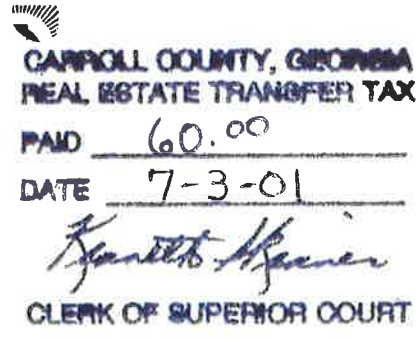 CARROLL COUNTY, GEORGIA
REAL ESTATE TRANSFER TAX
PAID 60.00
DATE 7-3-01
Kenneth Skinner
CLERK OF SUPERIOR COURT